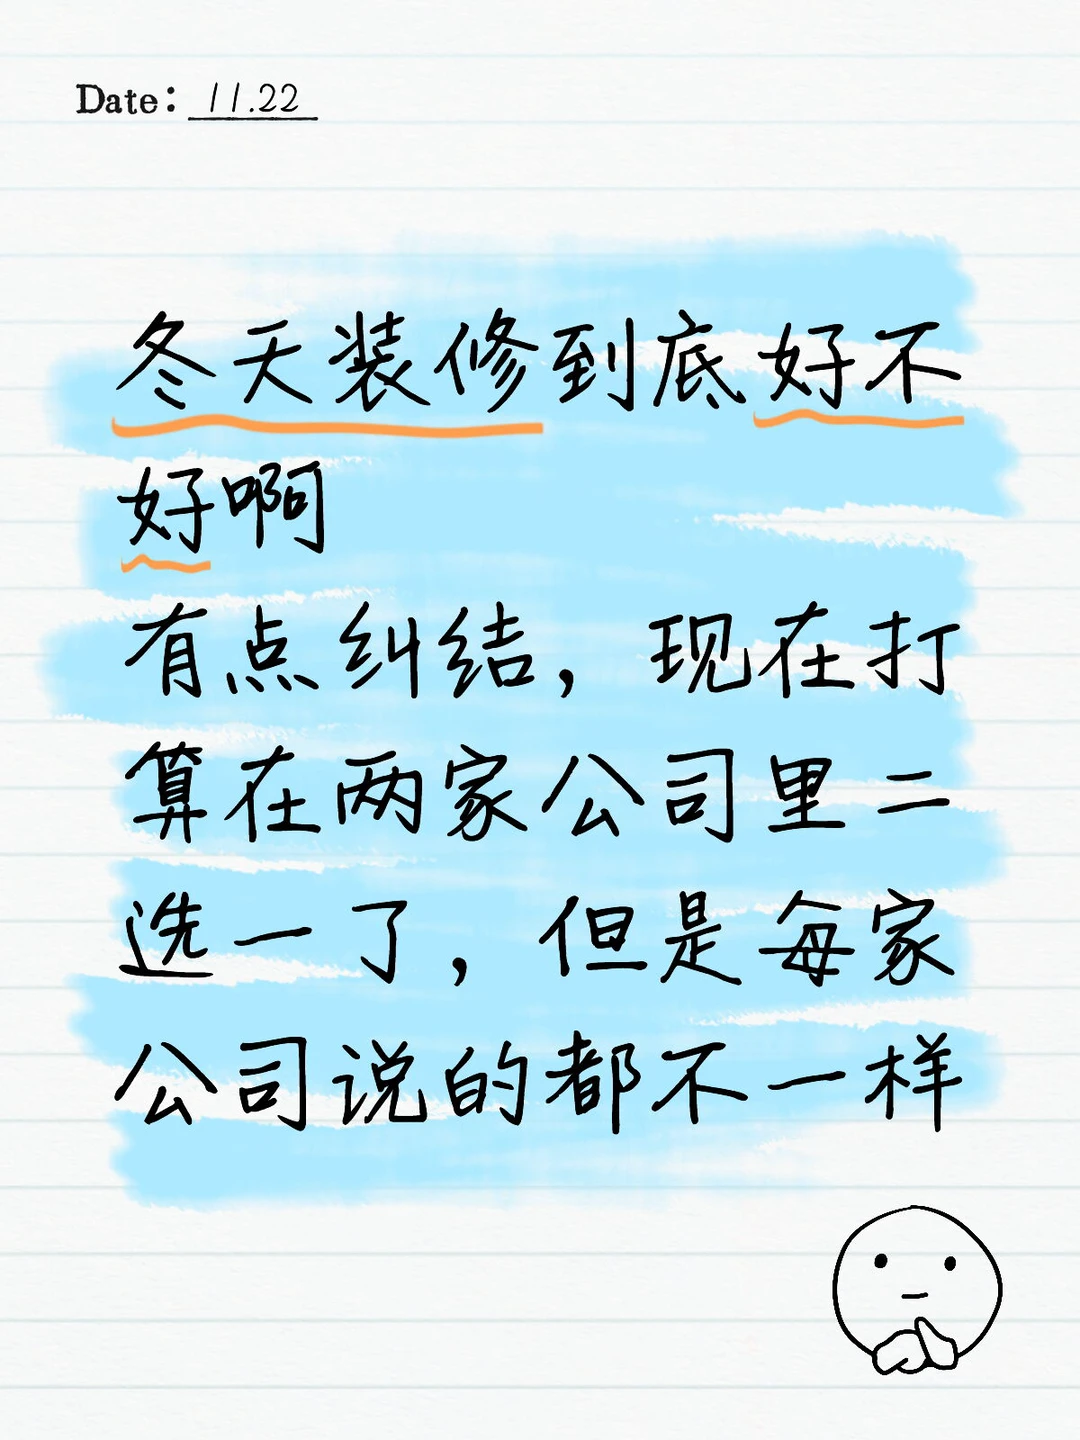 Date: 11.22
冬天装修到底好不
好啊
有点纠结，现在打
算在两家公司里二
选一了，但是每家
公司说的都不一样